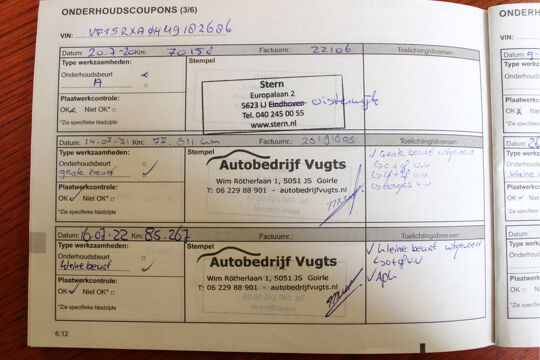 ONDERHOUDSCOUPONS (3/6)
VIN: VF15RXA
Datum: 20.7-20 Km: 70158 Factuurnr.: 22106. Toelichting/diversen
Type werkzaamheden: Stempel
Onderhoudsbeurt
A
Stern
Europalaan 2
5623 LJ Eindhoven Oisterwijk
Tel. 040 245 00 55
www.stern.nl
Plaatwerkcontrole:
OK Niet OK*
*Zie specifieke bladzijde
Datum: 14-07-21 Km: 77.511 km Factuurnr.: Toelichting/diversen
Type werkzaamheden: Stempel
Onderhoudsbeurt
grote beurt
Autobedrijf Vugts
Wim Rötherlaan 1, 5051 JS Goirle
T: 06 229 88 901 - autobedrijfvugts.nl
Grote beurt uitgevoerd
Plaatwerkcontrole:
OK Niet OK*
*Zie specifieke bladzijde
Datum: 16.07.22 Km: 85.267 Factuurnr.: Toelichting/diversen
Type werkzaamheden: Stempel
Onderhoudsbeurt
kleine beurt
Autobedrijf Vugts
Wim Rötherlaan 1, 5051 JS Goirle
T: 06 229 88 901 - autobedrijfvugts.nl
kleine beurt uitgevoerd
Apk
Plaatwerkcontrole:
OK Niet OK*
*Zie specifieke bladzijde
6.12
ONDERH
VIN:
Datum:
Type werkz
Onderhouds
Plaatwerkco
OK Niet
*Zie specifieke
Datum: 26
Type werkz
Onderhouds
Plaatwerkco
OK Niet O
*Zie specifieke
Datum:
Type werkza
Onderhoudsb
Plaatwerkcon
OK Niet O
*Zie specifieke b